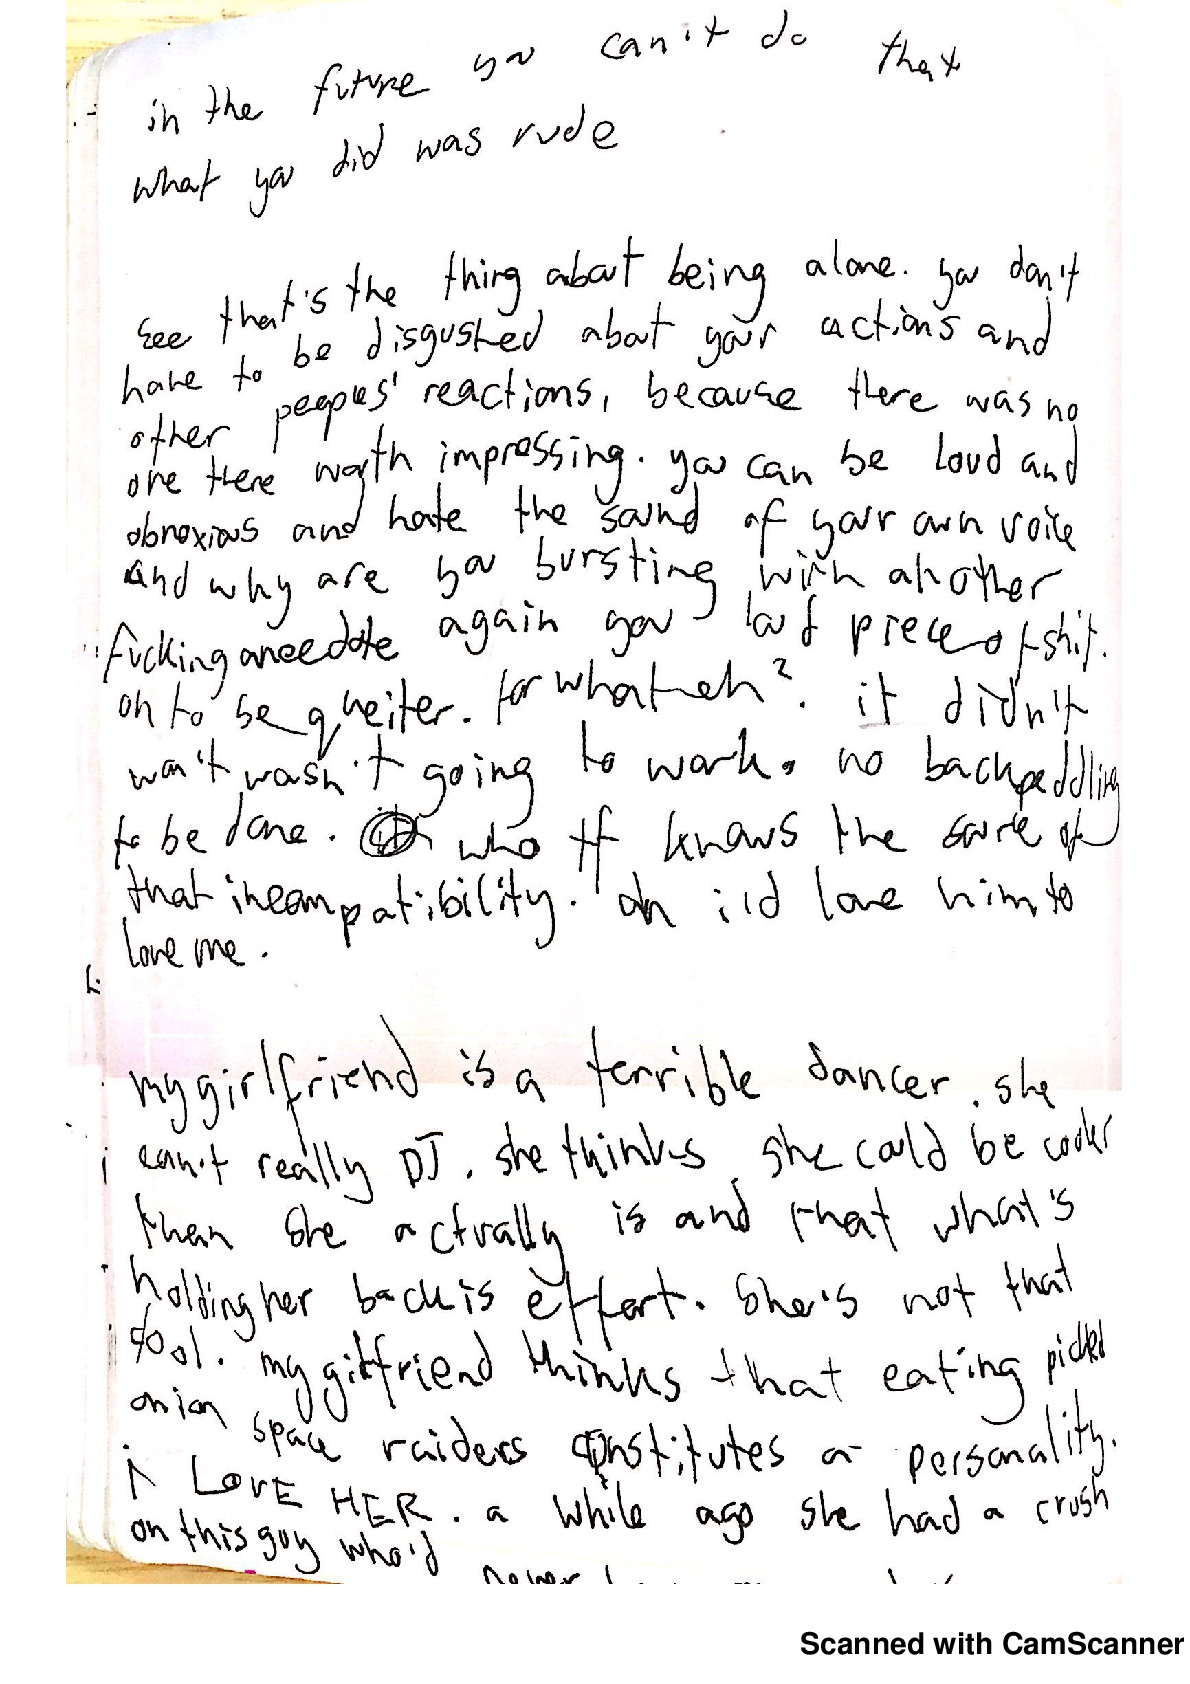 in the future you can't do that
what you did was rude
see that's the thing about being alone. you don't
have to be disgusted about your actions and
other peoples' reactions, because there was no
one there worth impressing. you can be loud and
obnoxious and hate the sound of your own voice
and why are you bursting with another
fucking anecdote again you loud piece of shit.
oh to be queiter. for what eh? it didn't
won't wasn't going to work. no backpeddling
to be done. who tf knows the source of
that incompatibility. oh i'd love him to
love me.
my girlfriend is a terrible dancer. she
can't really DJ. she thinks she could be cooler
than she actually is and that what's
holding her back is effort. she's not that
cool. my girlfriend thinks that eating pickled
onion space raiders constitutes a personality.
i LOVE HER. a while ago she had a crush
on this guy who'd never
Scanned with CamScanner